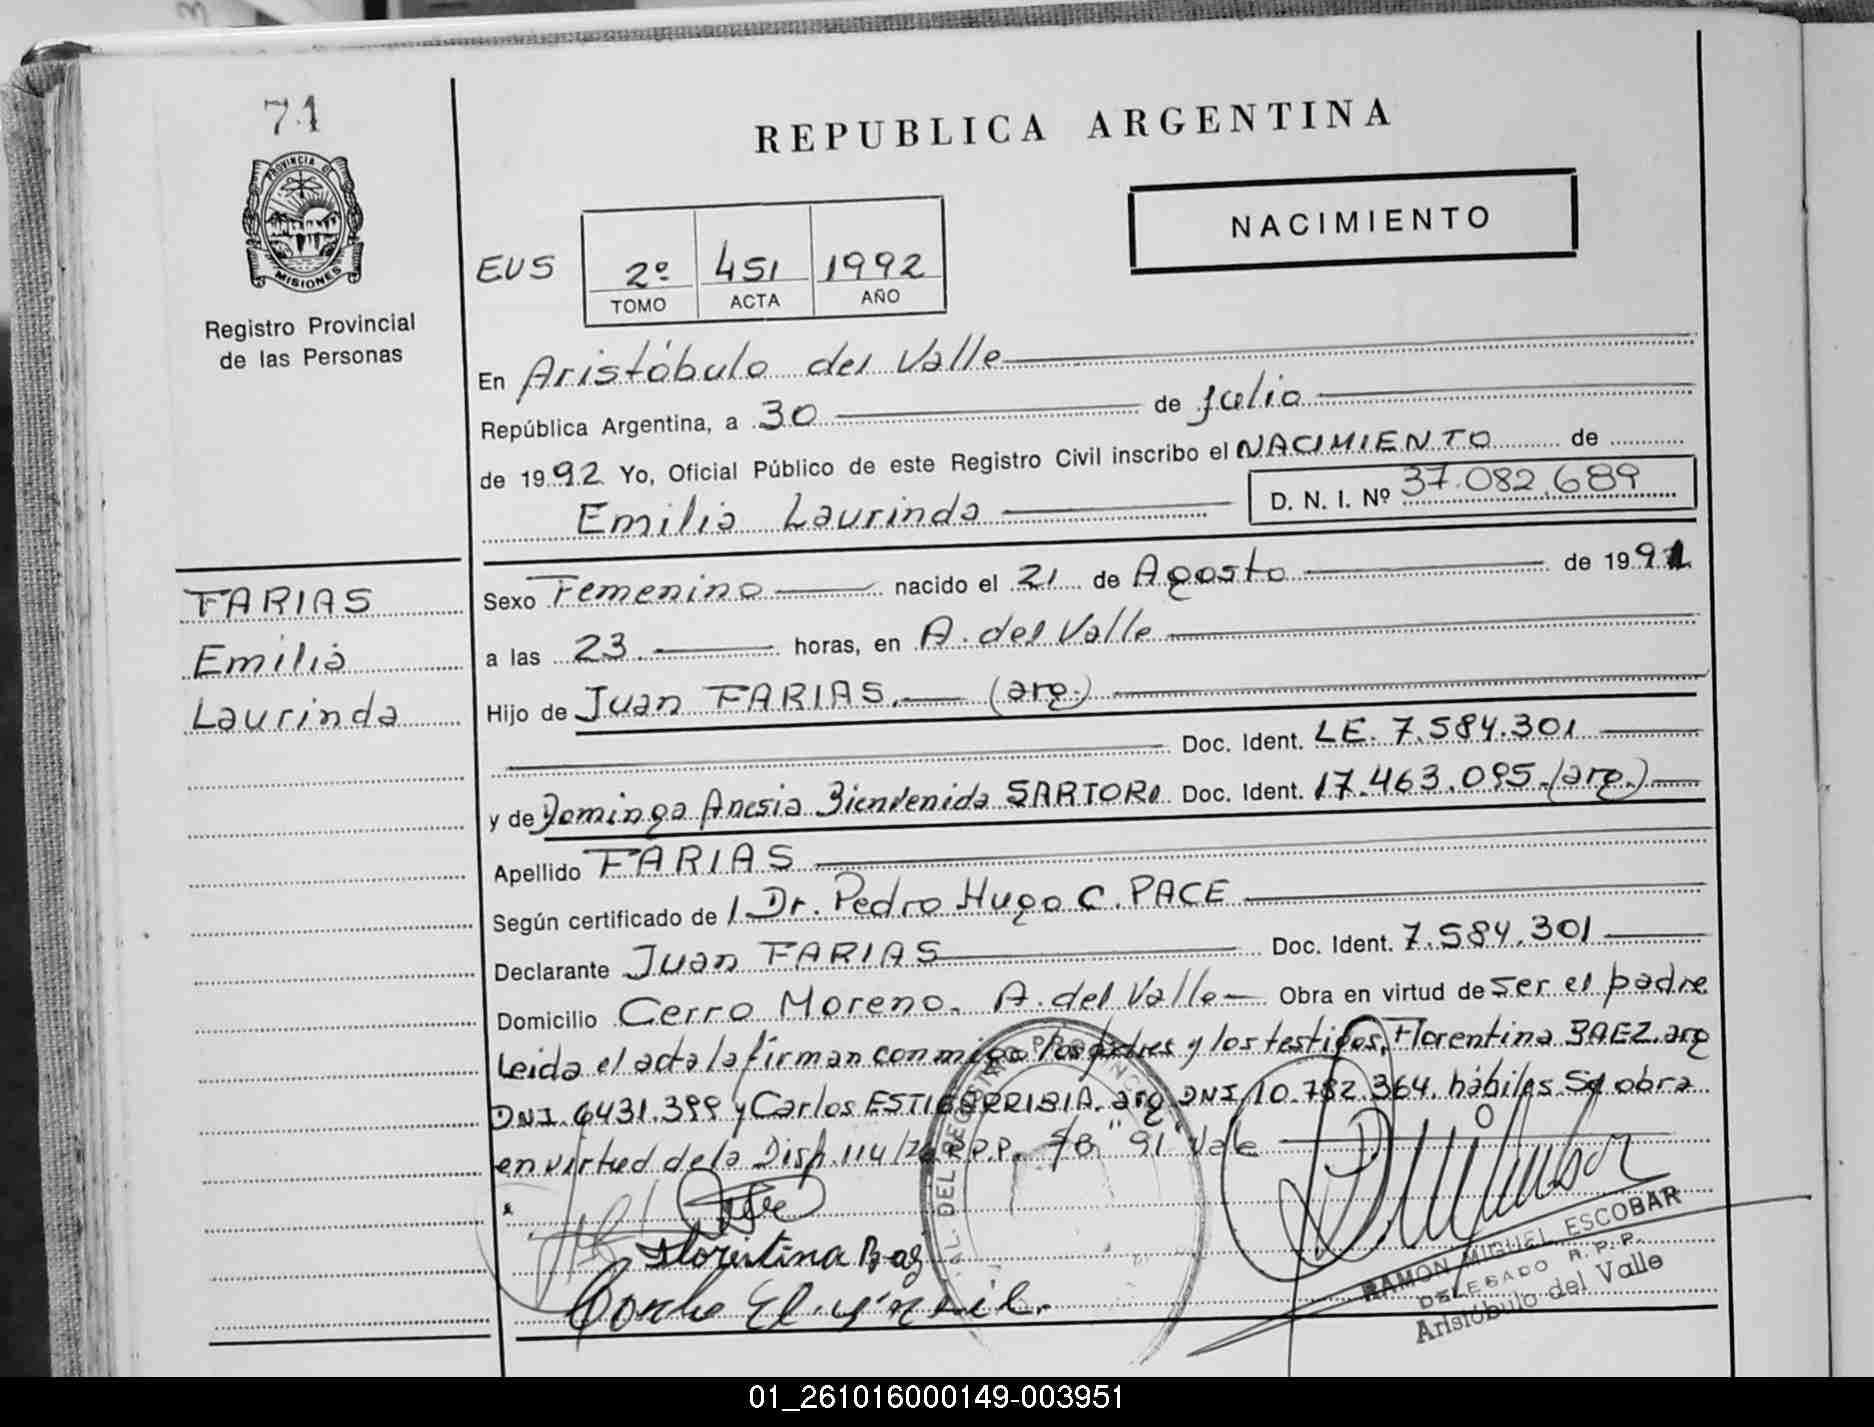 71
PROVINCIA DE
MISIONES
Registro Provincial
de las Personas
REPUBLICA ARGENTINA
NACIMIENTO
EUS
2º 451 1992
TOMO ACTA AÑO
En Aristóbulo del Valle
República Argentina, a 30 de Julio
de 1992 Yo, Oficial Público de este Registro Civil inscribo el NACIMIENTO de
Emilia Laurinda D. N. I. Nº 37.082.689
FARIAS
Emilia
Laurinda
Sexo Femenino nacido el 21 de Agosto de 1991
a las 23 horas, en A. del Valle
Hijo de Juan FARIAS. (arg.)
Doc. Ident. LE. 7.584.301
y de Dominga Anesia Bienvenida SARTORI Doc. Ident. 17.463.095.(arg.)
Apellido FARIAS
Según certificado de Dr. Pedro Hugo C. PACE
Declarante Juan FARIAS Doc. Ident. 7.584.301
Domicilio Cerro Moreno. A. del Valle Obra en virtud de ser el padre
Leida el acta la firman conmigo los padres y los testigos, Florentina BAEZ. arg
DNI. 6431.399 y Carlos ESTIGARRIBIA. arg DNI 10.782.364. hábiles. Se obra
en virtud de la Disp. 114/ R.P.P. S/B "91" Vale
Florentina Baez
RAMON MIGUEL ESCOBAR
DELEGADO R.P.P.
Aristóbulo del Valle
01_261016000149-003951